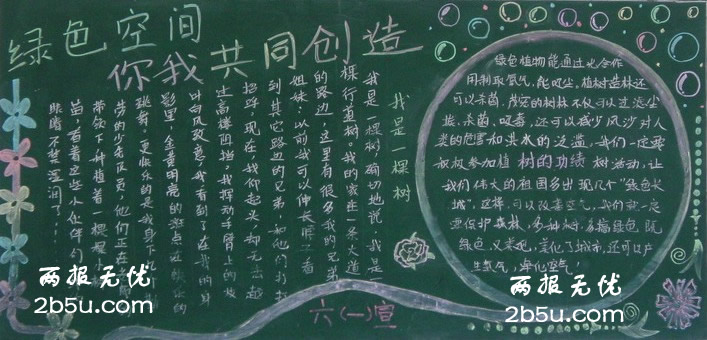 绿色空间
你我共同创造
我是一棵树
我是一棵树,确切地说,我是一
棵行道树。我的家在一条大道
的路边,这里有很多我的兄弟
姐妹。以前我可以伸长脖子看
到其它路边的兄弟,和他们打打
招呼,现在,我仰起头,却无法越
过高楼阻挡。我挥动手臂上的枝
叶向风致意,我看到了在我的身
影里,金黄明亮的
跳着。更快乐的是我身下
的少先队员,他们正在
带领下种植着一棵棵小树
苗,看着这些小伙伴们
眼睛不禁湿润了!
绿色植物能通过光合作
用制取氧气,能吸尘。植树造林还
可以杀菌,茂密的树林不仅可以过滤尘
埃,杀菌,吸毒,还可以减少风沙对人
类的危害和洪水的泛滥。我们一定要
积极参加植 树的功绩 树活动,让
我们伟大的祖国多出现几个"绿色长
城",这样,可以改善空气,我们就一定
要保护森林,多种树,多搞绿色,既
绿色,又美观,美化了城市,还可以产
生氧气,净化空气!
六(一)宣
两报无忧
2b5u.com
两报无忧
2b5u.com